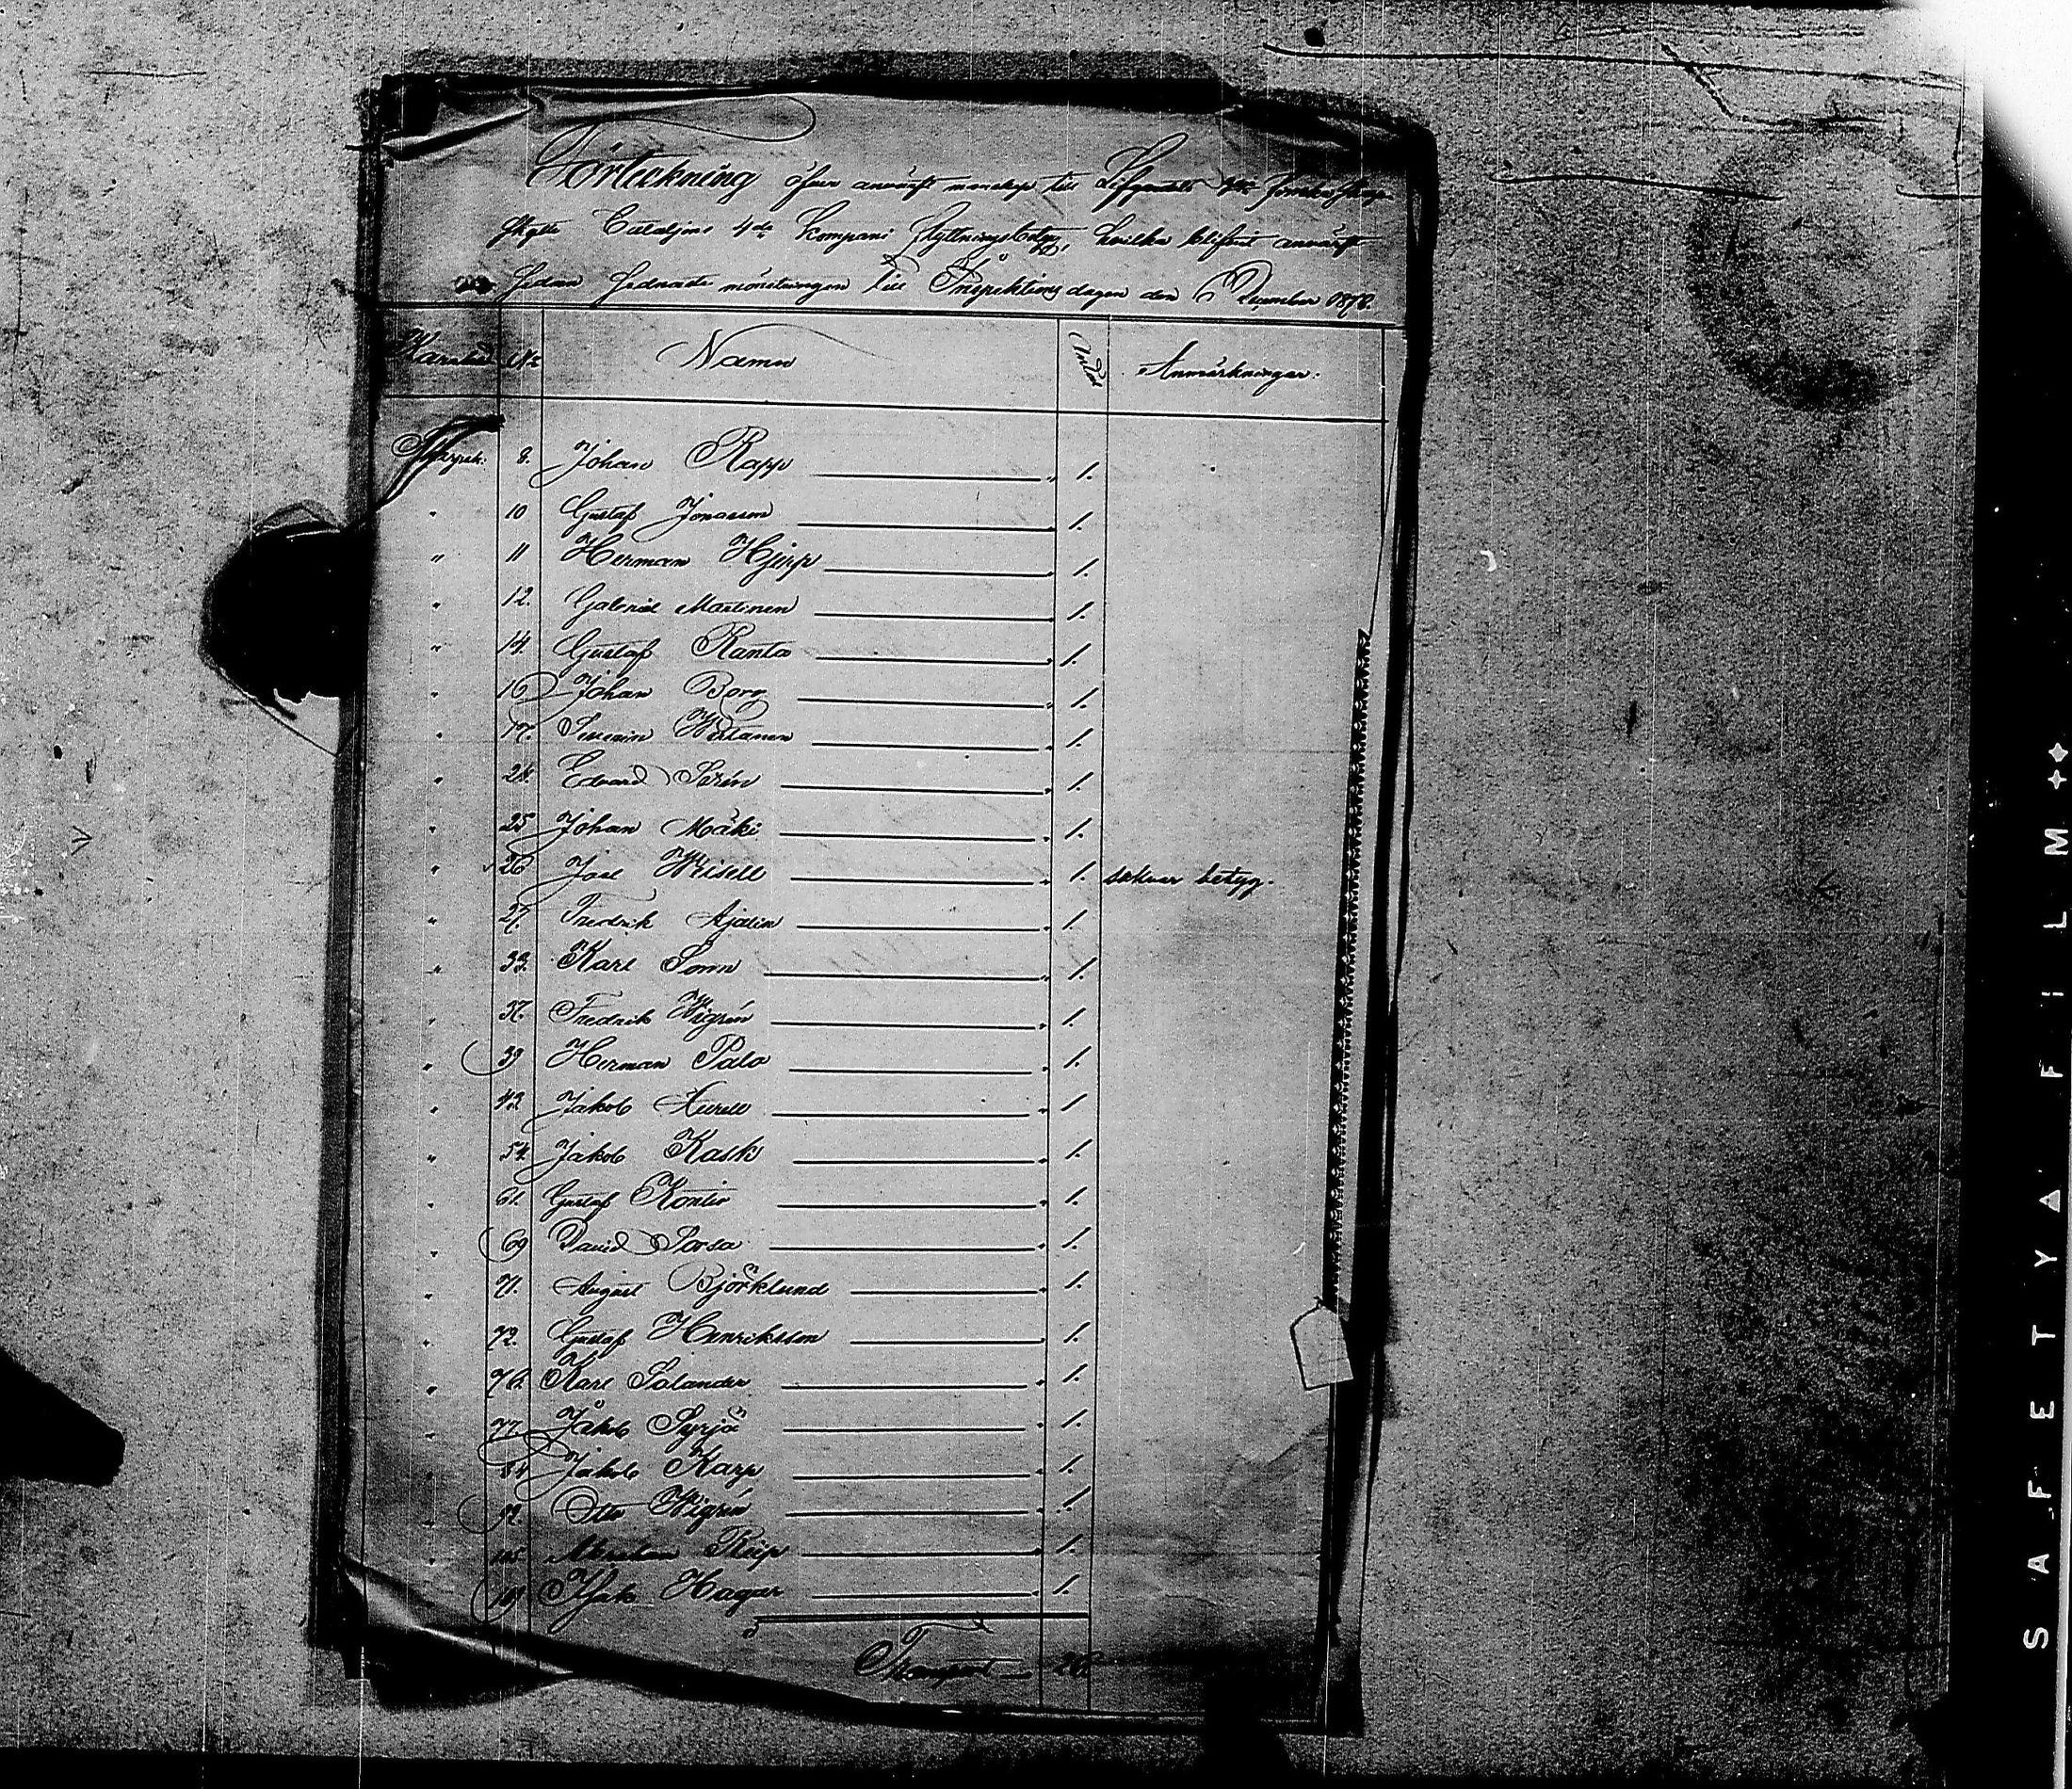 Förteckning öfver anvärft manskap till Lifgardets 3dje Finska Skarp-
skytte Bataljons 4de Kompani, hvilka blifvit anvärft
sedan sednaste mönstringen till Inspektions dagen den 6 December 1878.
Karaktär No Namn Antal Anmärkningar.
Skarpsk. 8. Johan Rapp 1.
" 10 Gustaf Jonasson 1.
" 11 Herman Hjerp 1.
" 12. Gabriel Martinen 1.
" 14. Gustaf Ranta 1.
" 16 Johan Borg 1.
" 17. Severin Wirtanen 1.
" 24. Edvard Sirén 1.
" 25 Johan Mäki 1.
" 26 Joel Weisell 1. saknar betyg.
" 27. Fredrik Ajalin 1.
" 33. Karl Sonn 1.
" 37. Fredrik Wigrén 1.
" 39 Herman Palo 1.
" 43. Jakob 1.
" 54. Jakob Kask 1.
" 61. Gustaf Kontio 1.
" 69 David Sorsa 1.
" 71. August Björklund 1.
" 72. Gustaf Henriksson 1.
" 76. Karl Salander 1.
" 77. Jakob Syrjä 1.
" Jakob Karp 1.
" 92. Otto Wigrén 1.
" 105. Abraham Riip 1.
" 109 Isak Hagar 1.
Transport 26.
SAFETY FILM